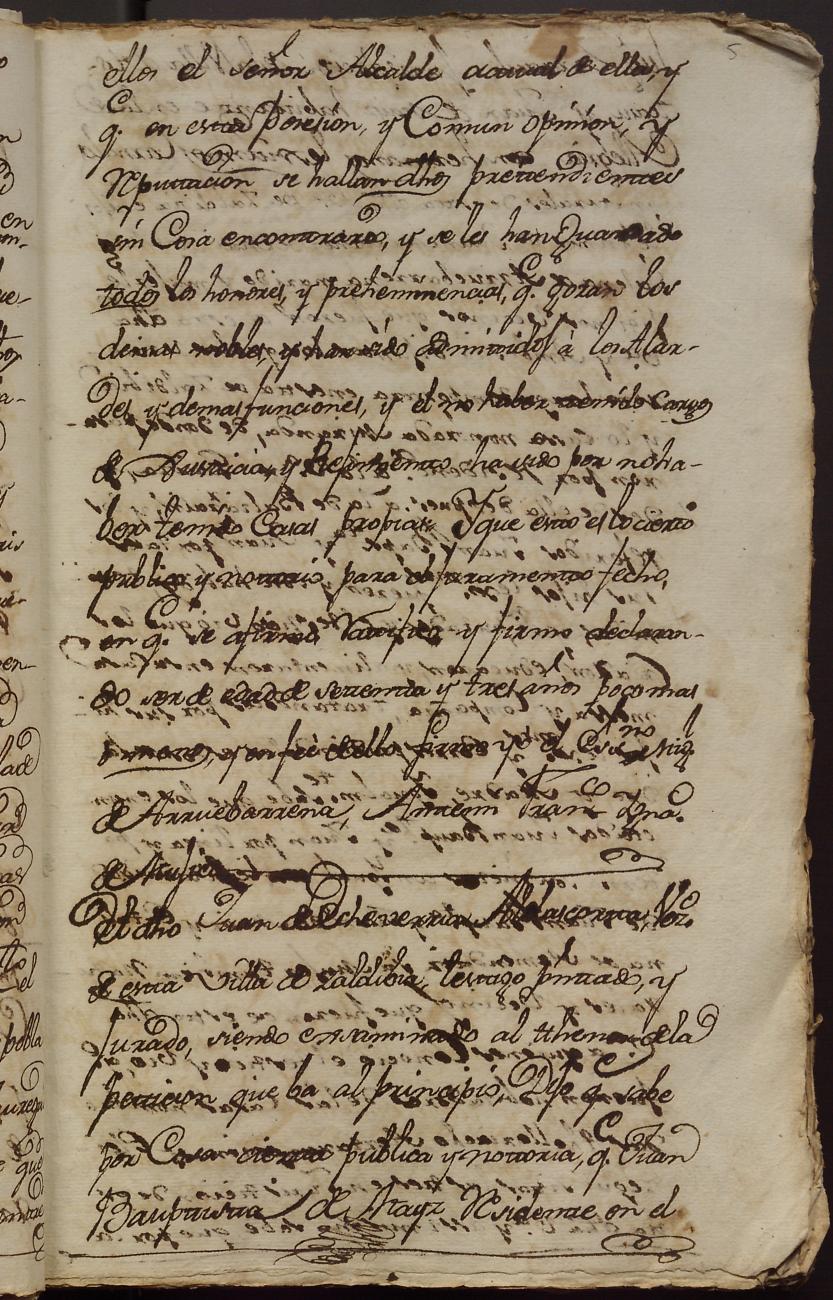 5
ellos el señor Alcalde actual de ella, y
q.e en esta Posesion, y Comun opinion, y
Reputacion se hallan dhos pretendientes
sin Cosa encontrario, y se les han Guardado
todos los honores, y prehemminencias, q.e gozan los
demas nobles, y han sido admitidos à los Alar-
des y demas funciones, y el no haber tenido Cargos
de Justicia, y Regimiento ha sido por no ha-
ber tenido Casas propias. Y que esto es lo cierto
publico y notorio, para el juramento fecho,
en q.e se afirmo, Ratifico y firmo declaran-
do ser de edad de settenta y tres anos poco mas
o menos, y en feè de ello firme yo el Ess.no Mig.l
de Arruebarrena, Antemi Fran.co Ign.o
de
El dho Juan de Echeverria Aldascorta, Vez.o
de esta Villa de Zaldibia, testigo pntado, y
Jurado, siendo examinado al thenor de la
peticion que ba al principio, Dijo q.e sabe
por Cosa cierta publica y nottoria, q.e Juan
Bauptista de Atayz Residente en el